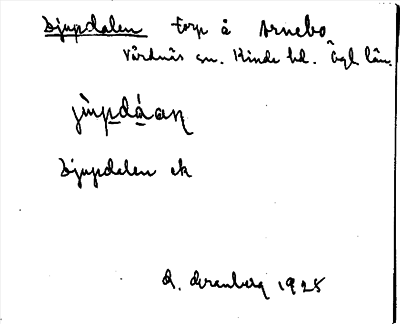 Djupdalen torp å Arnebo
Vårdnäs sn. Kinda hd. Ögl län.
jùpdáan
Djupdalen ek
1925